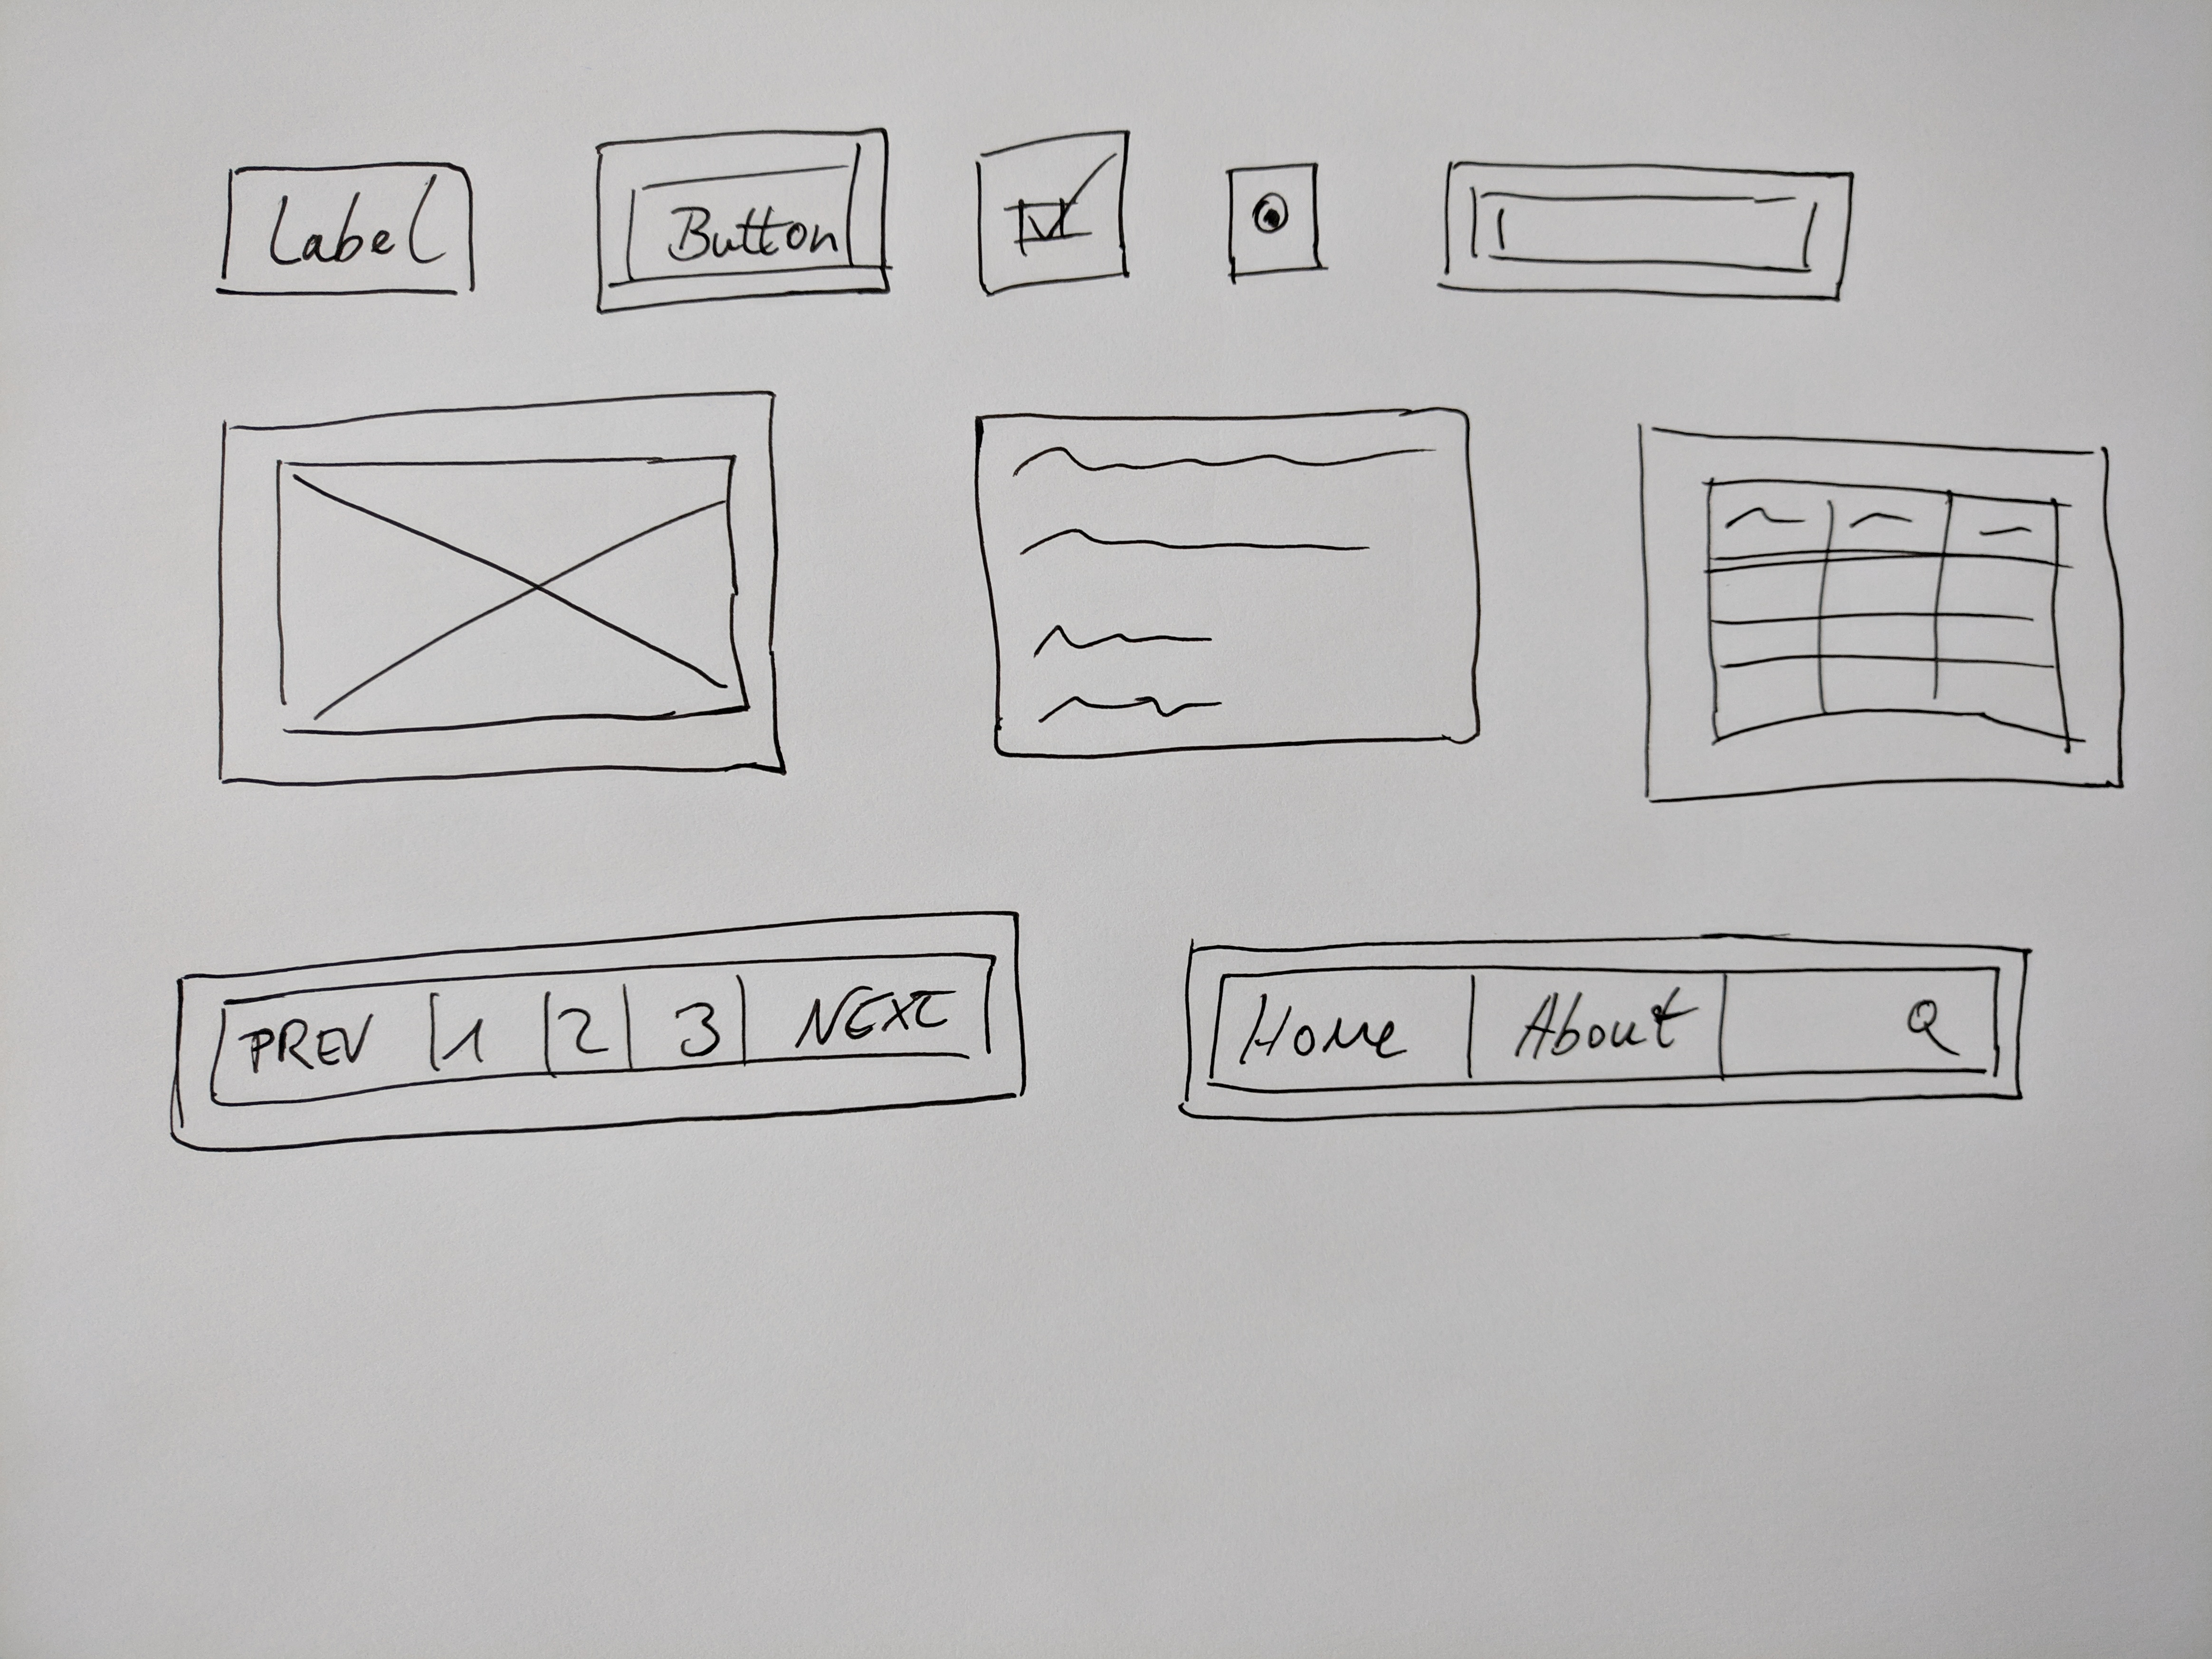 Label Button
PREV 1 2 3 NEXT
Home About